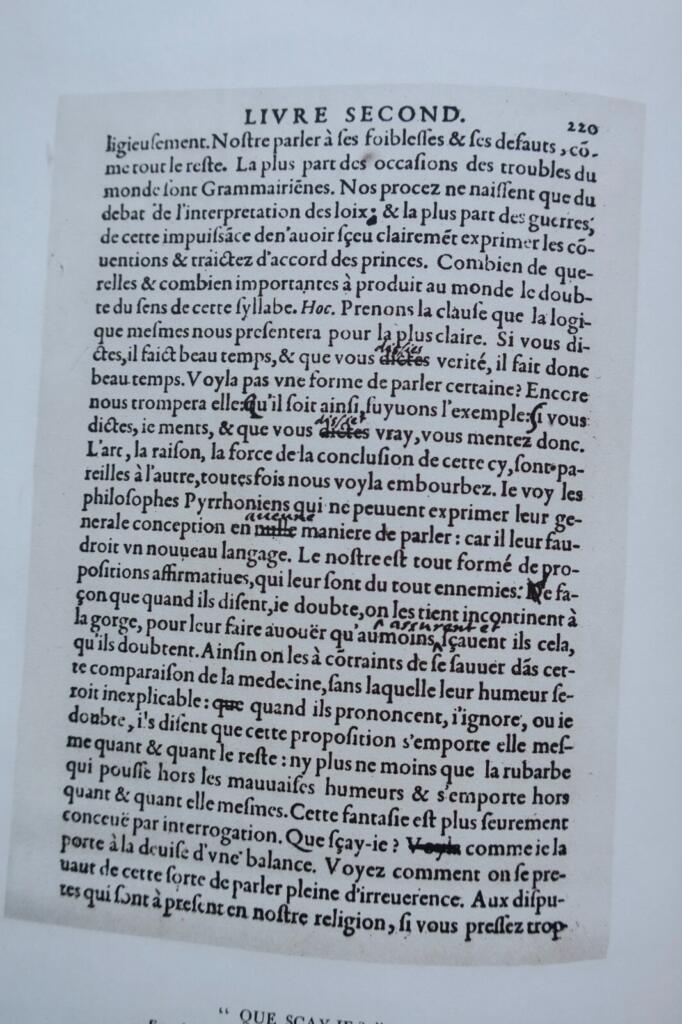 LIVRE SECOND.
220
ligieusement. Nostre parler à ses foiblesses & ses defauts, cõ-
me tout le reste. La plus part des occasions des troubles du
monde sont Grammairiẽnes. Nos procez ne naissent que du
debat de l'interpretation des loix; & la plus part des guerres,
de cette impuissãce den'auoir sçeu clairemẽt exprimer les cõ-
uentions & traictez d'accord des princes. Combien de que-
relles & combien importantes à produit au monde le doub-
te du sens de cette syllabe. Hoc. Prenons la clause que la logi-
que mesmes nous presentera pour la plus claire. Si vous di-
disies
ctes, il faict beau temps, & que vous dictes verité, il fait donc
beau temps. Voyla pas vne forme de parler certaine? Encore
nous trompera elle: Qu'il soit ainsi, suyuons l'exemple: si vous
disies
dictes, ie ments, & que vous dictes vray, vous mentez donc.
L'art, la raison, la force de la conclusion de cette cy, sont pa-
reilles à l'autre, toutes fois nous voyla embourbez. Ie voy les
philosophes Pyrrhoniens qui ne peuuent exprimer leur ge-
aucune
nerale conception en nulle maniere de parler: car il leur fau-
droit vn nouueau langage. Le nostre est tout formé de pro-
positions affirmatiues, qui leur sont du tout ennemies: De fa-
çon que quand ils disent, ie doubte, on les tient incontinent à
assurent et
la gorge, pour leur faire auouër qu'aumoins sçauent ils cela,
qu'ils doubtent. Ainsin on les à cõtraints de se sauuer dãs cet-
te comparaison de la medecine, sans laquelle leur humeur se-
roit inexplicable: que quand ils prononcent, i'ignore, ou ie
doubte, i's disent que cette proposition s'emporte elle mes-
me quant & quant le reste: ny plus ne moins que la rubarbe
qui pousse hors les mauuaises humeurs & s'emporte hors
quant & quant elle mesmes. Cette fantasie est plus seurement
conceuë par interrogation. Que sçay-ie? Voyla comme ie la
porte à la deuise d'vne balance. Voyez comment on se pre-
uaut de cette sorte de parler pleine d'irreuerence. Aux dispu-
tes qui sont à present en nostre religion, si vous pressez trop